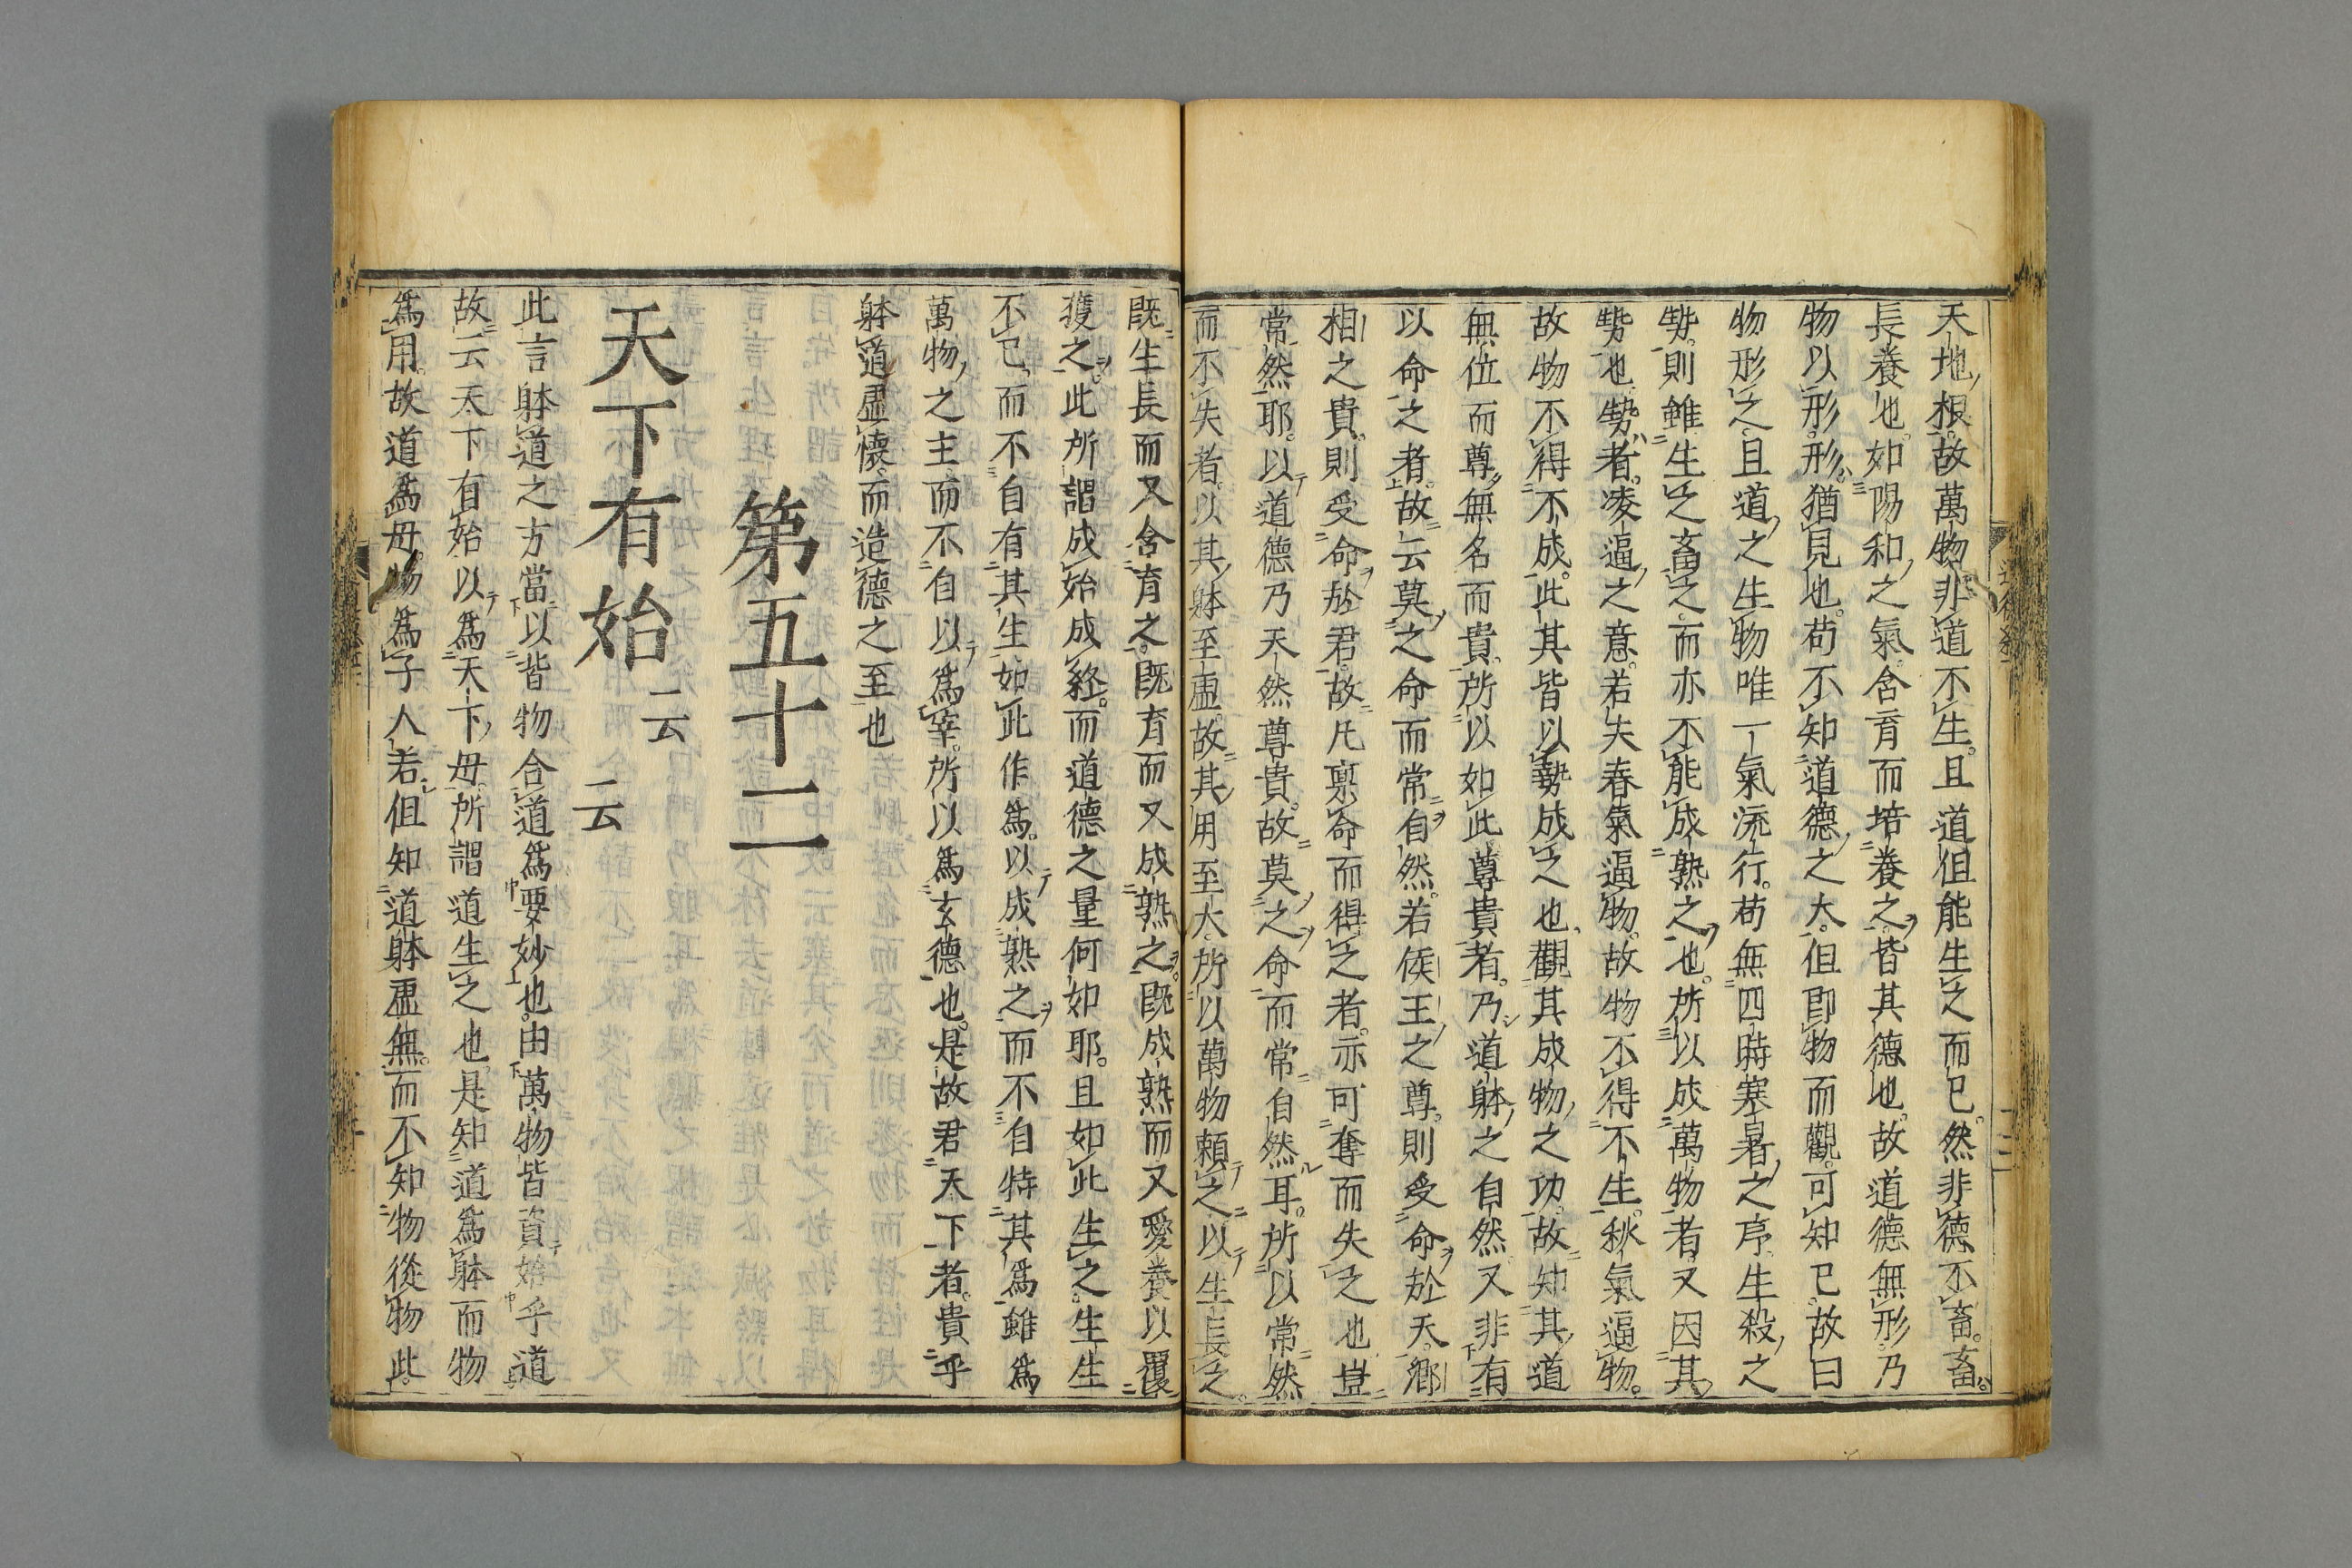 天地根故萬物非道不生且道但能生之而已然非德不畜畜
長養也如陽和之氣含育而培養之皆其德也故道德無形乃
物以形形猶見也苟不知道德之大但即物而觀可知已故曰
物形之且道之生物唯一氣流行苟無四時寒暑之序生殺之
勢則雖生之畜之而亦不能成熟之也所以成萬物者又因其
勢也勢者凌逼之意若夫春氣逼物故物不得不生秋氣逼物
故物不得不成此其皆以勢成之也觀其成物之功故知其道
無位而尊無名而貴所以如此尊貴者乃道躰之自然又非有
以命之者故云莫之命而常自然若侯王之尊則受命於天卿
相之貴則受命於君故凡稟命而得之者亦可奪而失之也豈
常然耶以道德乃天然尊貴故莫之命而常自然耳所以常然
而不失者以其躰至虛故其用至大所以萬物賴之以生長之
既生長而又含育之既育而又成熟之既成熟而又愛養以覆
獲之此所謂成始成終而道德之量何如耶且如此生之生生
不已而不自有其生如此作為以成熟之而不自恃其為雖為
萬物之主而不自以為宰所以為玄德也是故君天下者貴乎
躰道虛懷而造德之至也
第五十二
天下有始云云
此言躰道之方當以皆物合道為要妙也由萬物皆資始乎道
故云天下有始以為天下母所謂道生之也是知道為躰而物
為用故道為母物為子人若但知道躰虛無而不知物從物此